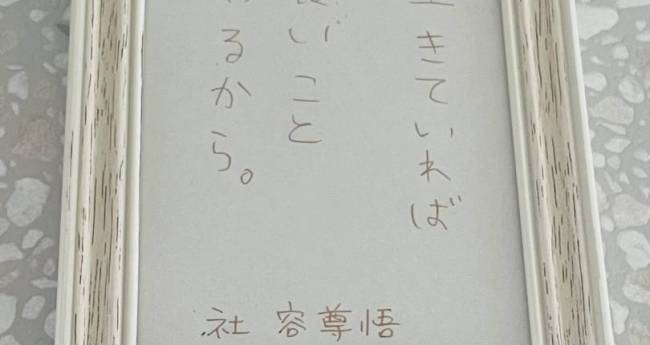 きていれば
いこと
るから。
社 容尊悟